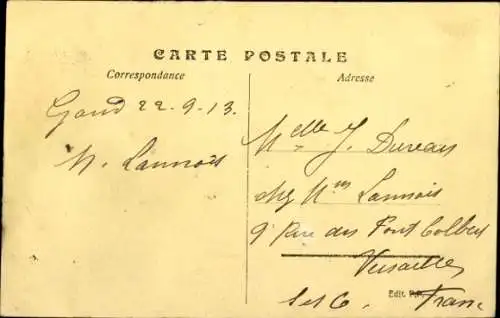 CARTE POSTALE
Correspondance
Adresse
Gand 22-9-13.
M. Lannois
Melle J. Dureau
chez Mme Lannois
9 Rue des Pont Colbert
Versailles
Edit. P.P.
S et O. France